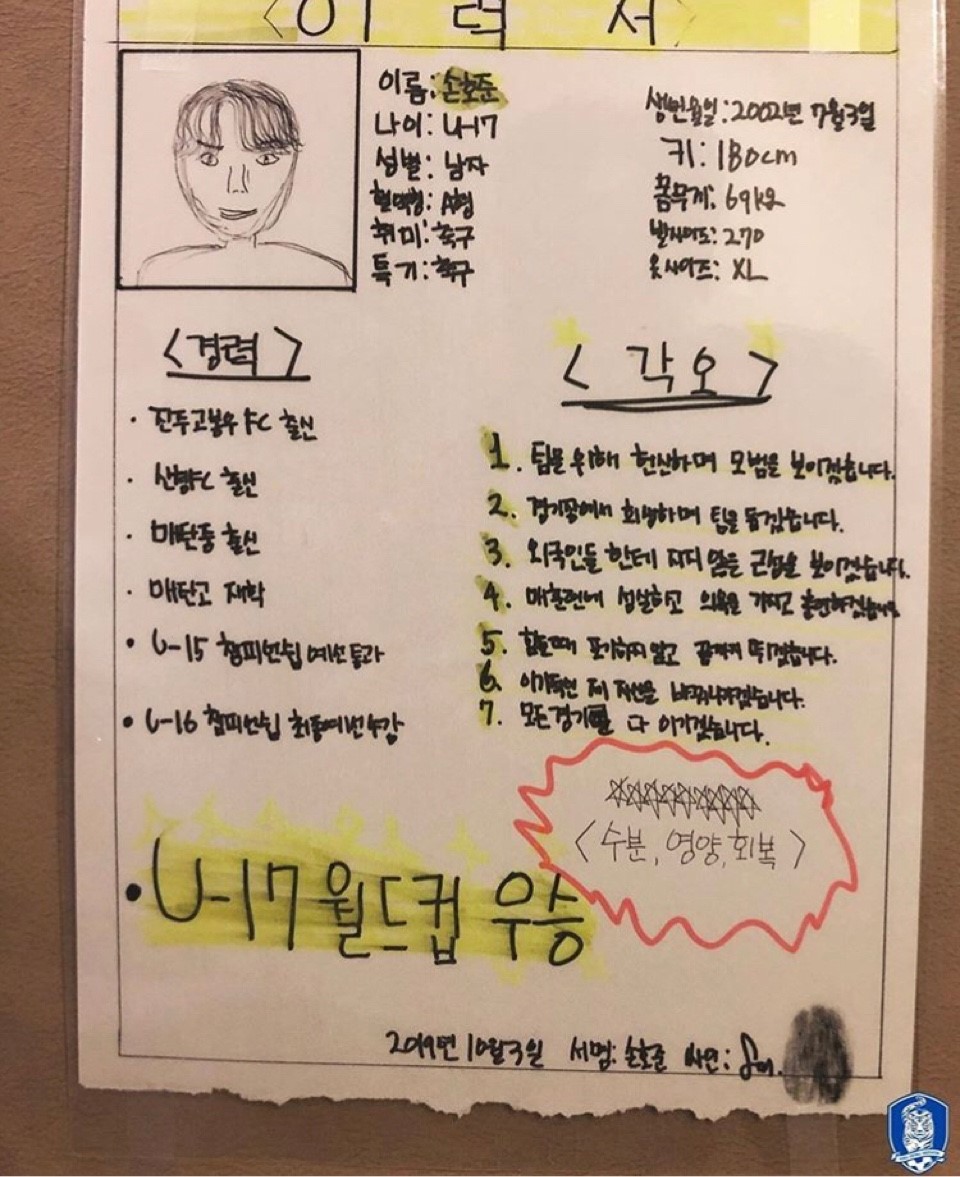 <이력서>
이름: 손호준
나이: U-17
성별: 남자
혈액형: A형
취미: 축구
특기: 축구
생년월일: 2002년 7월 3일
키: 180cm
몸무게: 69kg
발사이즈: 270
옷사이즈: XL
<경력>
· 전주고봉우 FC 출신
· FC 출신
· 매탄중 출신
· 매탄고 재학
· U-15 챔피언쉽 예선 통과
· U-16 챔피언쉽 최종예선
· U-17 월드컵 우승
<각오>
1. 팀을 위해 헌신하며 모범을 보이겠습니다.
2. 경기장에서 희생하며 팀을 돕겠습니다.
3. 외국인들 한테 지지 않는 근성을 보이겠습니다.
4. 매훈련에 성실하고 의욕을 가지고 훈련하겠습니다
5. 힘들때 포기하지 않고 끝까지 뛰겠습니다.
6. 이기적인 제 자신을 바꿔나가겠습니다.
7. 모든경기를 다 이기겠습니다.
<수분, 영양, 회복>
2019년 10월 3일 서명: 손호준 싸인: